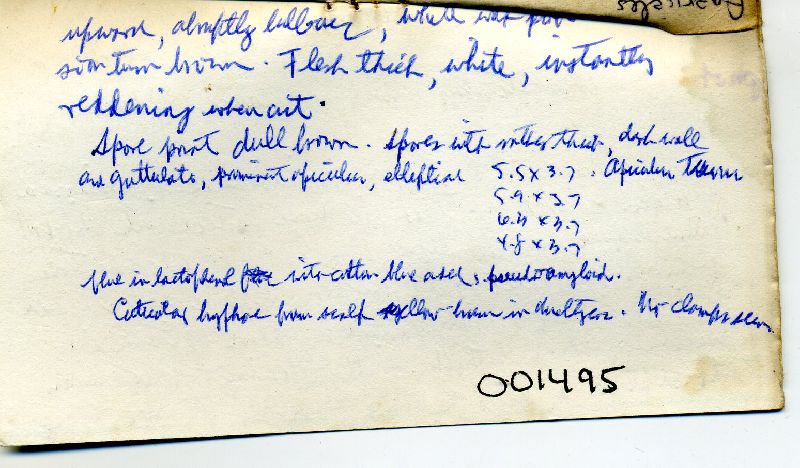 upward, abruptly bulbous, white when
soon turn brown. Flesh thick, white, instantly
reddening when cut.
Spore print dull brown. Spores with rather thick, dark wall
and guttulate, prominent apiculus, elliptical 5.5 x 3.7. Apiculus
5.9 x 3.7
6.3 x 3.7
4.8 x 3.7
blue in lactophenol into cotton blue and pseudoamyloid.
Cuticular hyphae from scalp yellow-brown in . No clamps seen.
001495